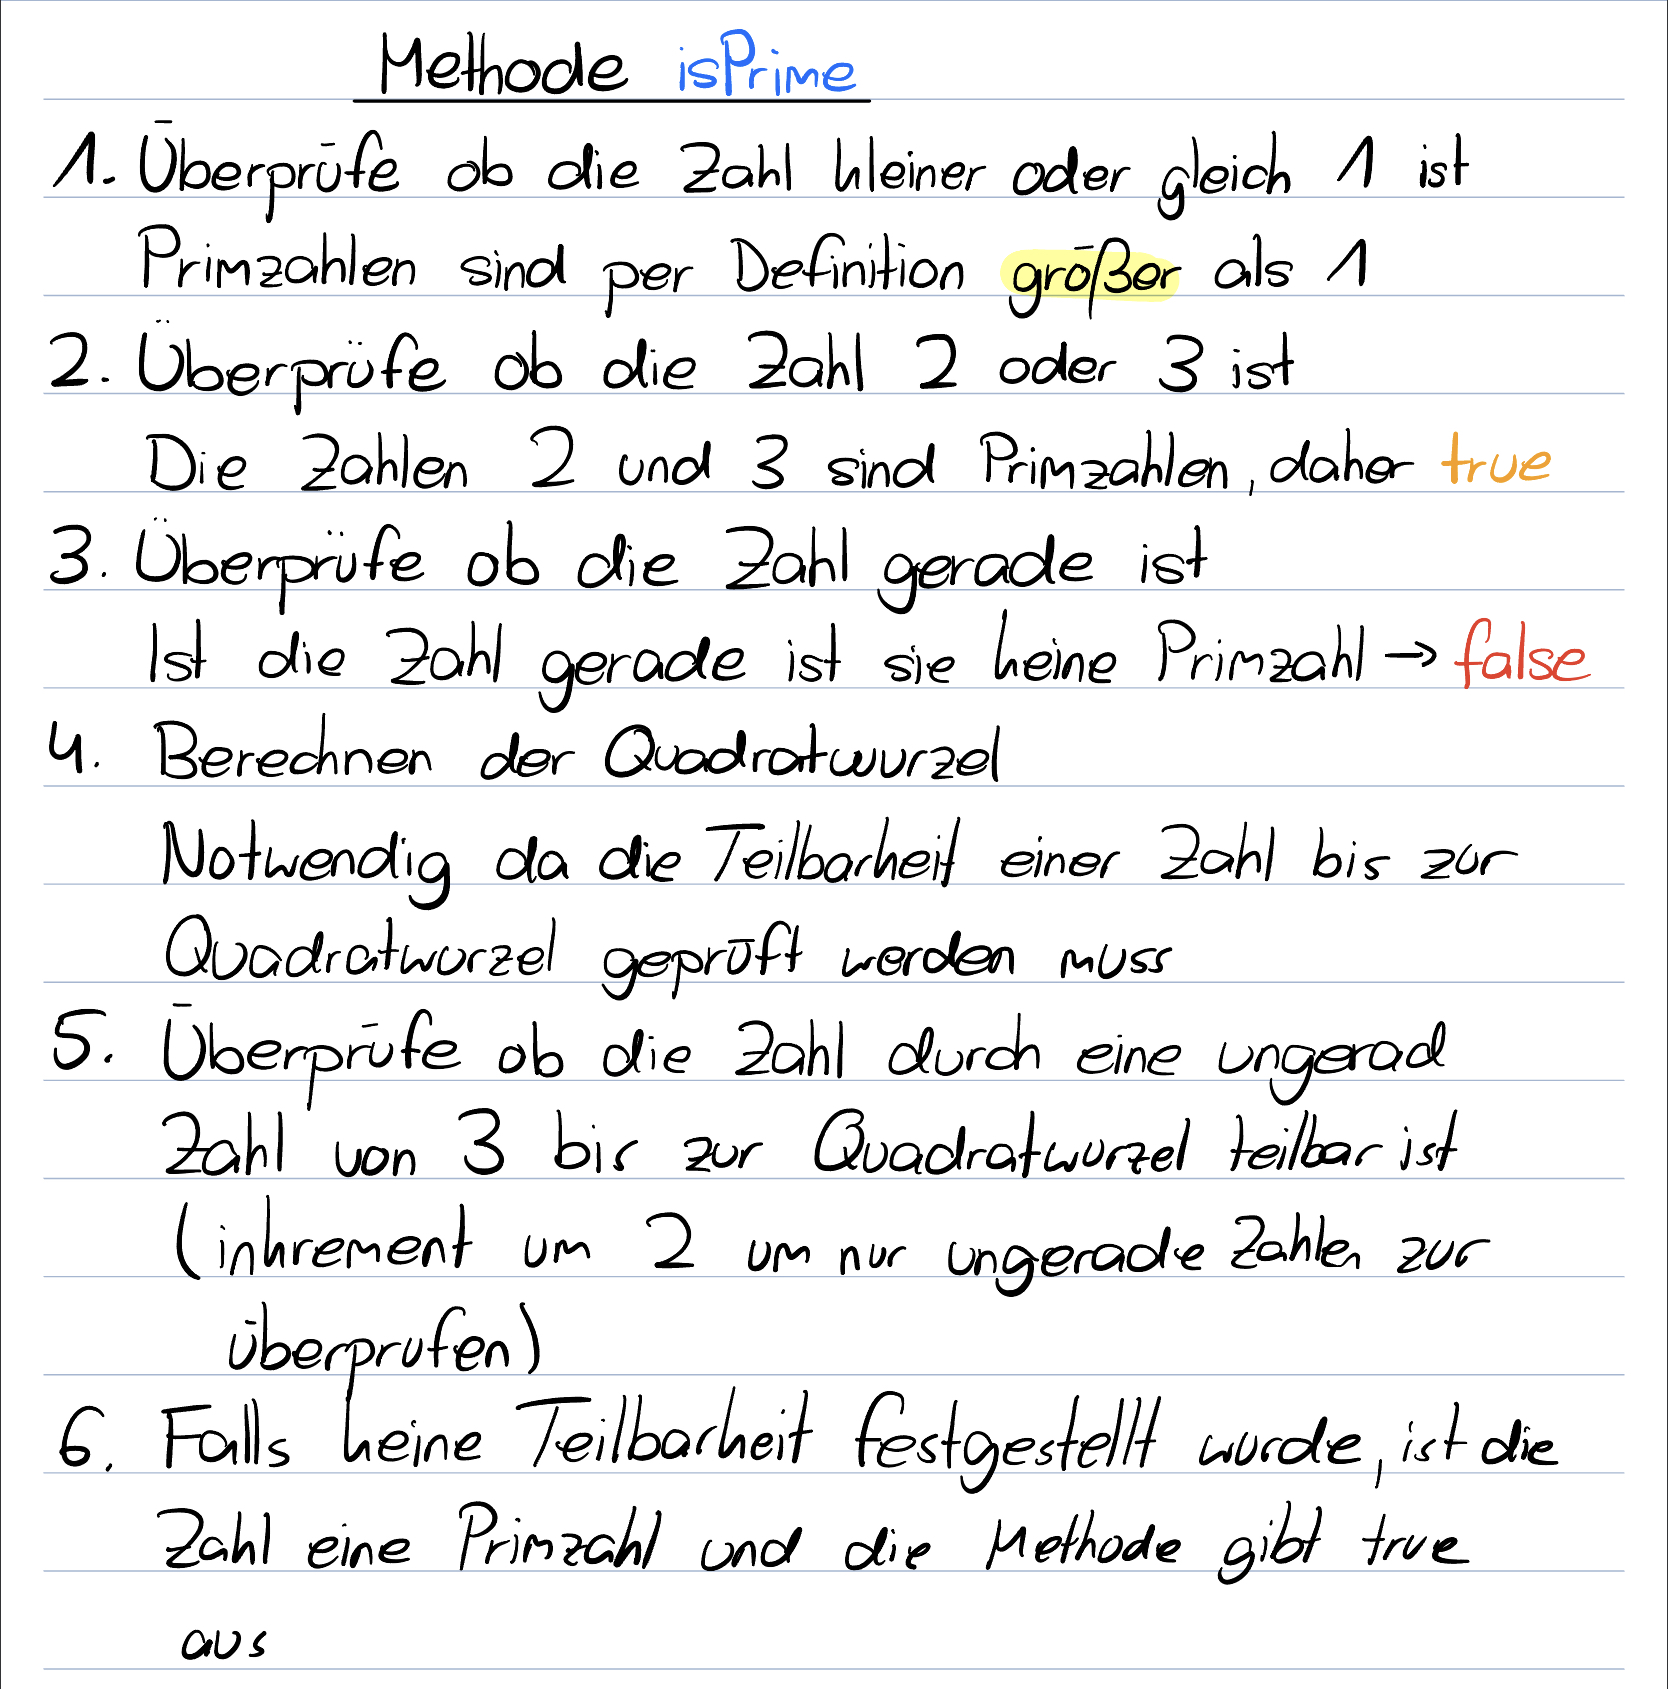 Methode isPrime
1. Überprüfe ob die Zahl kleiner oder gleich 1 ist
Primzahlen sind per Definition größer als 1
2. Überprüfe ob die Zahl 2 oder 3 ist
Die Zahlen 2 und 3 sind Primzahlen, daher true
3. Überprüfe ob die Zahl gerade ist
Ist die Zahl gerade ist sie keine Primzahl → false
4. Berechnen der Quadratwurzel
Notwendig da die Teilbarkeit einer Zahl bis zur
Quadratwurzel geprüft werden muss
5. Überprüfe ob die Zahl durch eine ungerad
Zahl von 3 bis zur Quadratwurzel teilbar ist
(inkrement um 2 um nur ungerade Zahlen zur
überprufen)
6. Falls keine Teilbarkeit festgestellt wurde, ist die
Zahl eine Primzahl und die Methode gibt true
aus